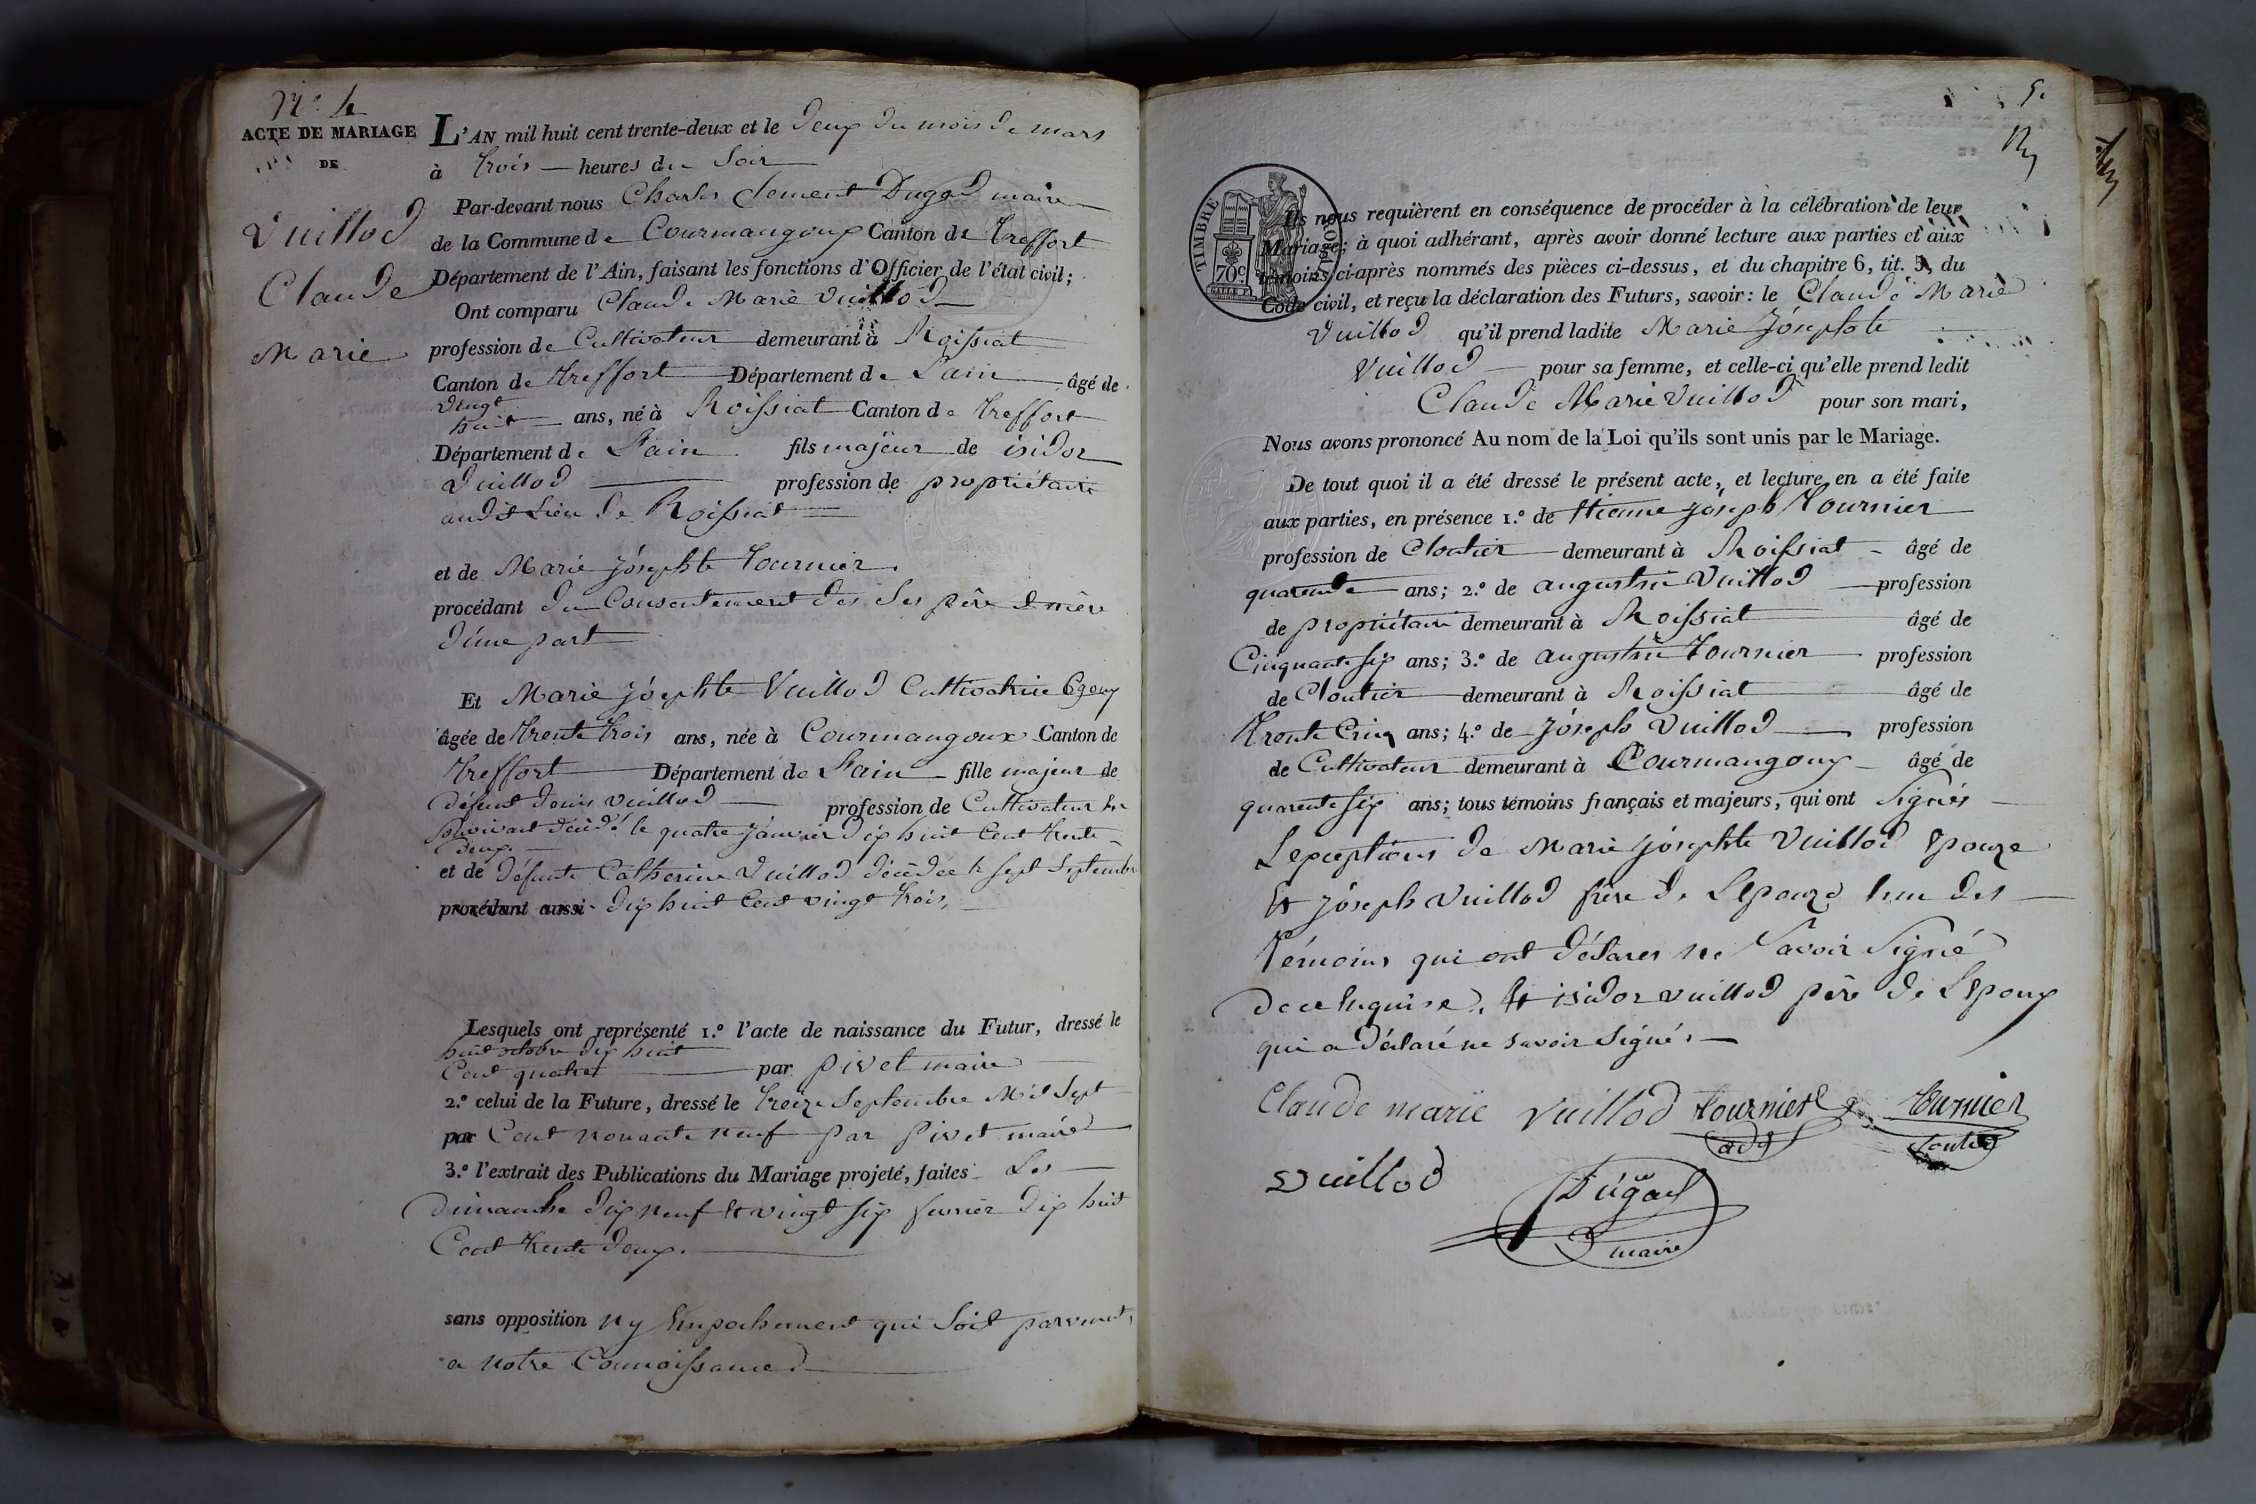 N.º 4
ACTE DE MARIAGE
DE
Vuillod
Claude
Marie
L'AN mil huit cent trente-deux et le deux du mois de mars
à trois heures du Soir
Par-devant nous Charles Clement Dugad maire
de la Commune de Courmangoux Canton de Treffort
Département de l'Ain, faisant les fonctions d'Officier de l'état civil;
Ont comparu Claude Marie Vuillod
profession de Cultivateur demeurant à Roissiat
Canton de Treffort Département de Lain âgé de
vingt
huit ans, né à Roissiat Canton de Treffort
Département de Lain fils majeur de isidor
Vuillod profession de propriétaire
audit Lieu de Roissiat
et de Marie Jósephte Tournier
procédant du Consentement des Ses père et mère
d'úne part
Et Marie Jósephte Vuillod Cultivatrice
âgée de trente trois ans, née à Courmangoux Canton de
Treffort Département de Lain fille majeur de
défunt denis vuillod profession de Cultivateur
Survivant décidé le quatre janvier dix huit Cent trente
deux
et de défunte Catherine Vuillod décédée le sept Septembre
procédant aussi dix huit Cent vingt trois,
Lesquels ont représenté 1.º l'acte de naissance du Futur, dressé le
huit octobre dix huit
Cent quatre par pivet maire
2.º celui de la Future, dressé le treize Septembre Mil Sept
par Cent nonante neuf par pivet maire
3.º l'extrait des Publications du Mariage projeté, faites Les
dimanche dix neuf et vingt six fevrier dix huit
Cent trente deux.
sans opposition ny Empechement qui Soit parvenut
a notre Connoissance
5.
TIMBRE ROYAL
70c.
Ils nous requièrent en conséquence de procéder à la célébration de leur
Mariage; à quoi adhérant, après avoir donné lecture aux parties et aux
témoins ci-après nommés des pièces ci-dessus, et du chapitre 6, tit. 5, du
Code civil, et reçu la déclaration des Futurs, savoir: le Claude Marie
Vuillod qu'il prend ladite Marie Jósephte
Vuillod pour sa femme, et celle-ci qu'elle prend ledit
Claude Marie Vuillod pour son mari,
Nous avons prononcé Au nom de la Loi qu'ils sont unis par le Mariage.
De tout quoi il a été dressé le présent acte, et lecture en a été faite
aux parties, en présence 1.º de Etienne jóseph Tournier
profession de Cloutier demeurant à Roissiat âgé de
quarente ans; 2.º de augustin Vuillod profession
de propriétaire demeurant à Roissiat âgé de
Cinquante six ans; 3.º de augustin Tournier profession
de Cloutier demeurant à Roissiat âgé de
trente Cinq ans; 4.º de Jóseph Vuillod profession
de Cultivateur demeurant à Courmangoux âgé de
quarente six ans; tous témoins français et majeurs, qui ont Signés
Lexceptions de Marie jósephte Vuillod Epouze
Et Jóseph Vuillod frère de Lepouze lun des
témoins qui ont déclarer ne Savoir Signé
de ce Enquise, Et isidor vuillod père de Lepoux
qui a déclaré ne savoir Signé.
Claude marie vuillod tournier Tournier
Vuillod
Dugad
maire